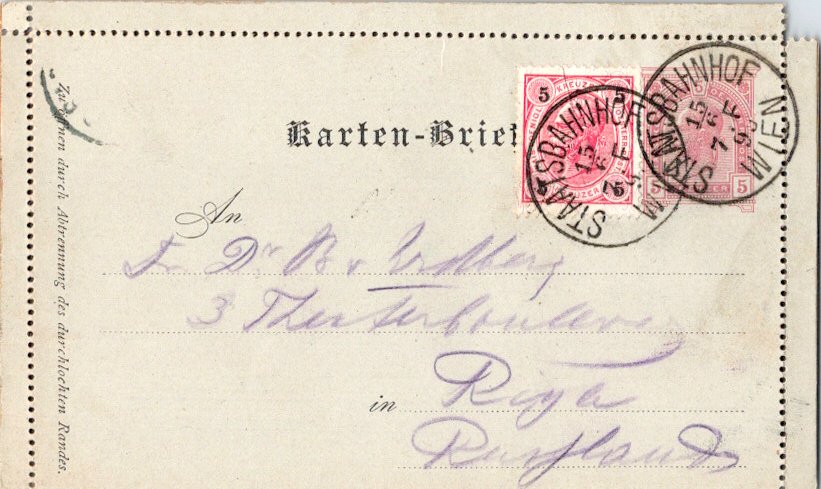 Karten-Brief
5 KREUZER 5
5 5
STAATSBAHNHOF WIEN
15 7 F 90
STAATSBAHNHOF WIEN
15 7 F
An
Dr B v
3 Theaterboulevard
in Riga
Russland
Zu öffnen durch Abtrennung des durchlochten Randes.